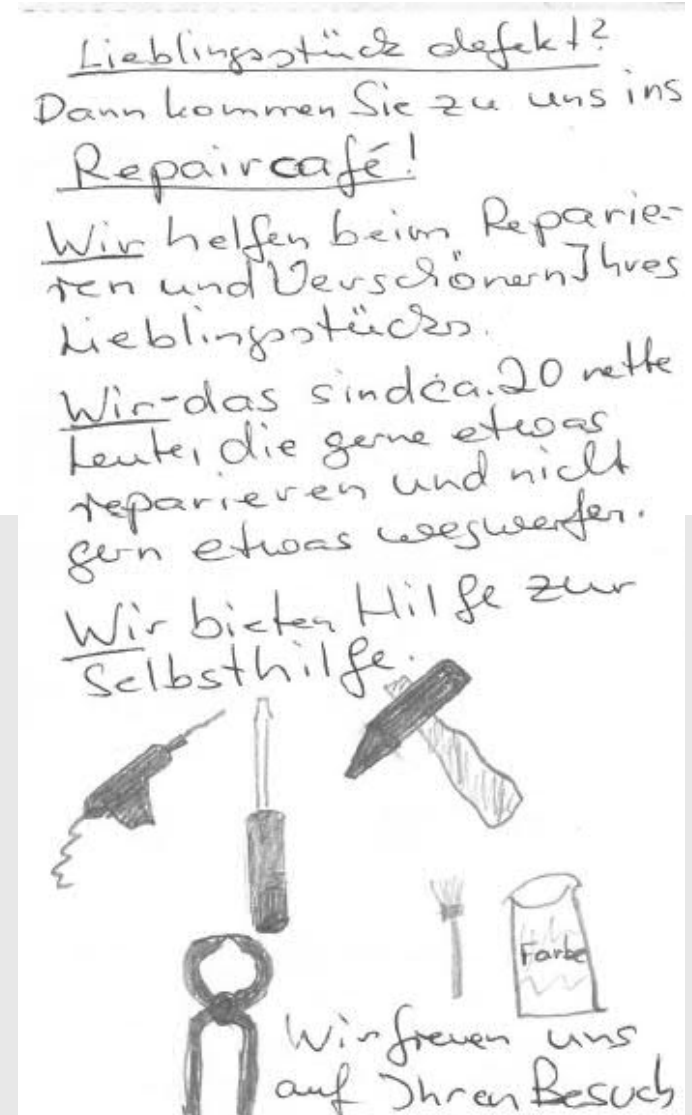 Lieblingsstück defekt?
Dann kommen Sie zu uns ins
Repaircafé!
Wir helfen beim Reparie-
ren und Verschönern Ihres
Lieblingsstücks.
Wir-das sind ca. 20 nette
Leute, die gerne etwas
reparieren und nicht
gern etwas wegwerfen.
Wir bieten Hilfe zur
Selbsthilfe.
Farbe
Wir freuen uns
auf Ihren Besuch